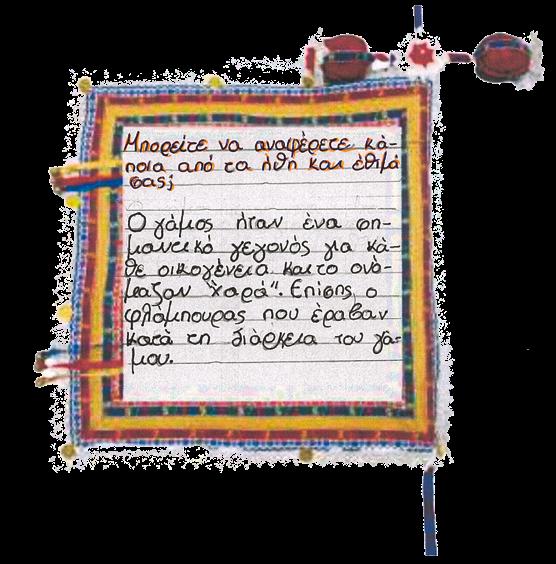 Μπορείτε να αναφέρετε κά-
ποια από τα ήθη και έθιμά
σας;
Ο γάμος ήταν ένα ση-
μαντικό γεγονός για κά-
θε οικογένεια και το ονό-
μαζαν "χαρά". Επίσης ο
φλάμπουρας που έραβαν
κατά τη διάρκεια του γά-
μου.